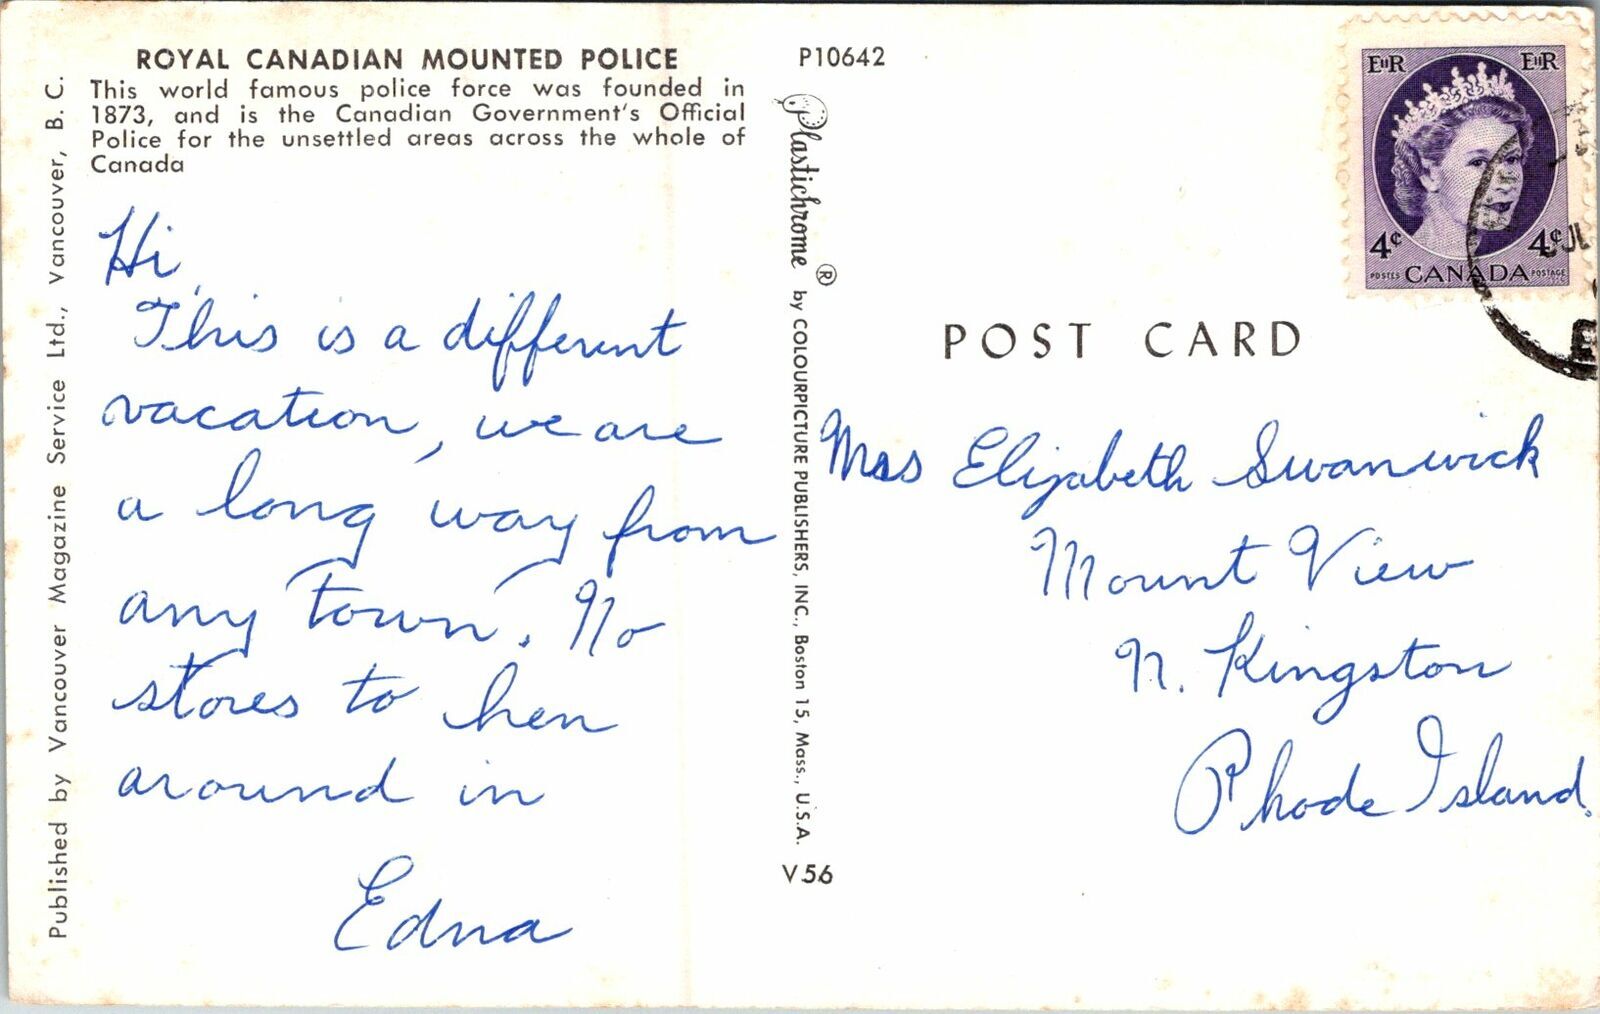 ROYAL CANADIAN MOUNTED POLICE
This world famous police force was founded in
1873, and is the Canadian Government's Official
Police for the unsettled areas across the whole of
Canada
Hi,
This is a different
vacation, we are
a long way from
any "town". No
stores to hen
around in
Edna
Published by Vancouver Magazine Service Ltd., Vancouver, B. C.
P10642
Plastichrome ® by COLOURPICTURE PUBLISHERS, INC., Boston 15, Mass., U.S.A.
V 56
EIIR EIIR
4¢ 4¢
POSTES CANADA POSTAGE
POST CARD
Mrs Elizabeth Swanwick
Mount View
N. Kingston
Rhode Island.